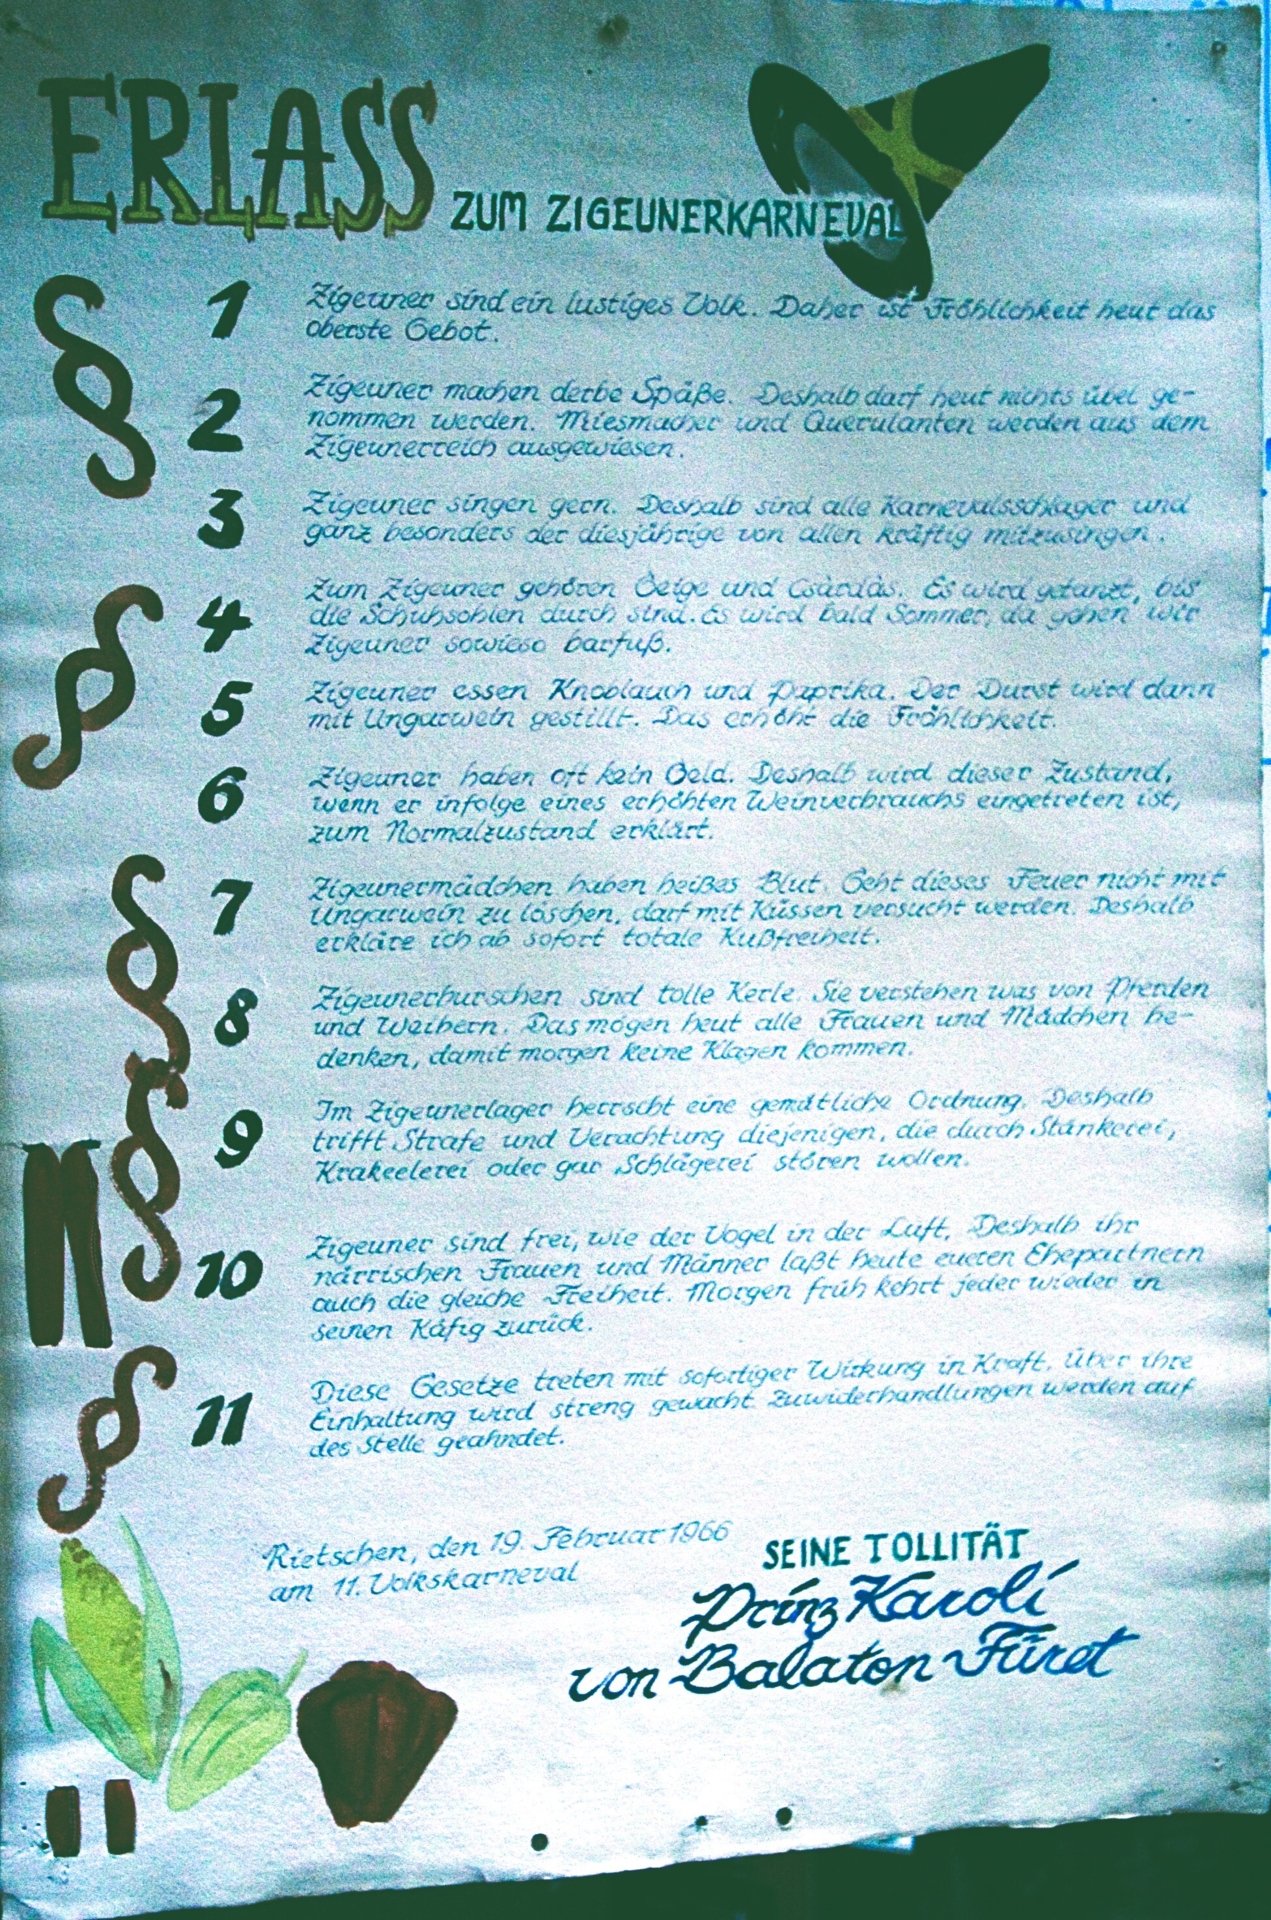 ERLASS ZUM ZIGEUNERKARNEVAL
§ 1 Zigeuner sind ein lustiges Volk. Daher ist Fröhlichkeit heut das
oberste Gebot.
2 Zigeuner machen derbe Späße. Deshalb darf heut nichts übel ge-
nommen werden. Miesmacher und Querulanten werden aus dem
Zigeunerreich ausgewiesen.
3 Zigeuner singen gern. Deshalb sind alle Karnevalsschlager und
ganz besonders der diesjährige von allen kräftig mitzusingen.
§ 4 Zum Zigeuner gehören Geige und Csàrdàs. Es wird getanzt, bis
die Schuhsohlen durch sind. Es wird bald Sommer, da gehen wir
Zigeuner sowieso barfuß.
5 Zigeuner essen Knoblauch und Paprika. Der Durst wird dann
mit Ungarwein gestillt. Das erhöht die Fröhlichkeit.
6 Zigeuner haben oft kein Geld. Deshalb wird dieser Zustand,
wenn er infolge eines erhöhten Weinverbrauchs eingetreten ist,
zum Normalzustand erklärt.
§ 7 Zigeunermädchen haben heißes Blut. Geht dieses Feuer nicht mit
Ungarwein zu löschen, darf mit Küssen versucht werden. Deshalb
erkläre ich ab sofort totale Kußfreiheit.
8 Zigeunerburschen sind tolle Kerle. Sie verstehen was von Pferden
und Weibern. Das mögen heut alle Frauen und Mädchen be-
denken, damit morgen keine Klagen kommen.
§ 9 Im Zigeunerlager herrscht eine gemütliche Ordnung. Deshalb
trifft Strafe und Verachtung diejenigen, die durch Stänkerei,
Krakeelerei oder gar Schlägerei stören wollen.
10 Zigeuner sind frei, wie der Vogel in der Luft. Deshalb ihr
närrischen Frauen und Männer laßt heute eueren Ehepartnern
auch die gleiche Freiheit. Morgen früh kehrt jeder wieder in
seinen Käfig zurück.
§ 11 Diese Gesetze treten mit sofortiger Wirkung in Kraft. Über ihre
Einhaltung wird streng gewacht. Zuwiderhandlungen werden auf
des Stelle geahndet.
Rietschen, den 19. Februar 1966
am 11. Volkskarneval
SEINE TOLLITÄT
Prinz Karoli
von Balaton-Füret